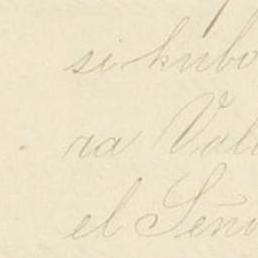 si hubo
ra Val
el Seño